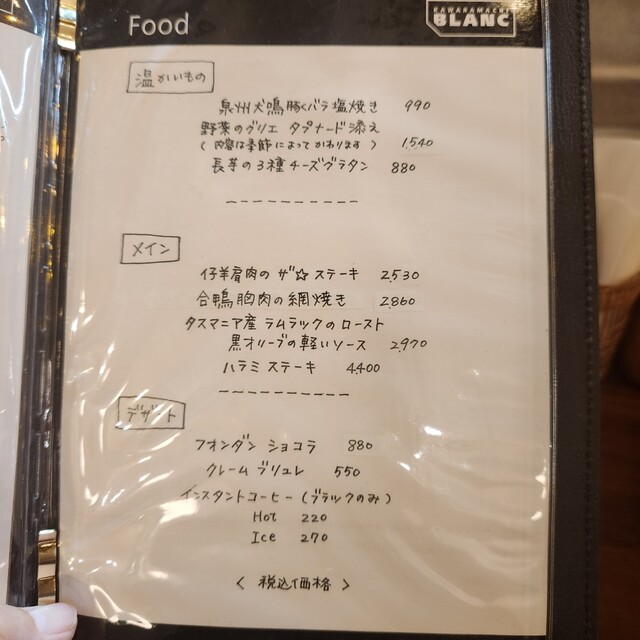 Food
KAWARAMACHI
BLANC
温かいもの
泉州犬鳴豚バラ塩焼き 990
野菜のグリエ タプナード添え
(内容は季節によってかわります) 1,540
長芋の3種チーズグラタン 880
メイン
仔羊肩肉の ザ☆ステーキ 2,530
合鴨胸肉の網焼き 2,860
タスマニア産 ラムラックのロースト
黒オリーブの軽いソース 2,970
ハラミステーキ 4,400
デザート
フォンダン ショコラ 880
クレーム ブリュレ 550
インスタントコーヒー(ブラックのみ)
Hot 220
Ice 270
< 税込価格 >